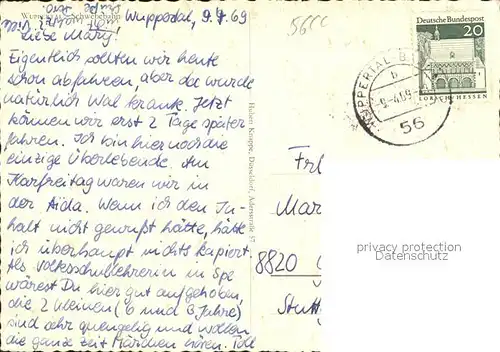 Wuppertal, 9.4.69
Wuppertal Schwebebahn
Liebe Mary!
Eigentlich sollten wir heute
schon abfahren, aber da wurde
natürlich Wal krank. Jetzt
können wir erst 2 Tage später
fahren. Ich bin hier noch die
einzige Überlebende. Am
Karfreitag waren wir in
der Aida. Wenn ich den In-
halt nicht gewußt hätte, hätte
ich überhaupt nichts kapiert.
Als Volksschullehrerin in Spe
wärest Du hier gut aufgehoben,
die 2 Kleinen (6 und 3 Jahre)
sind sehr quengelig und wollen
die ganze Zeit Märchen hören. Toll
Düsseldorf, Adersstraße 37
Deutsche Bundespost
20
LORSCH/HESSEN
WUPPERTAL
b
-9-4.69
56
Frl
Mar
8820
Stutt
privacy protection
Datenschutz